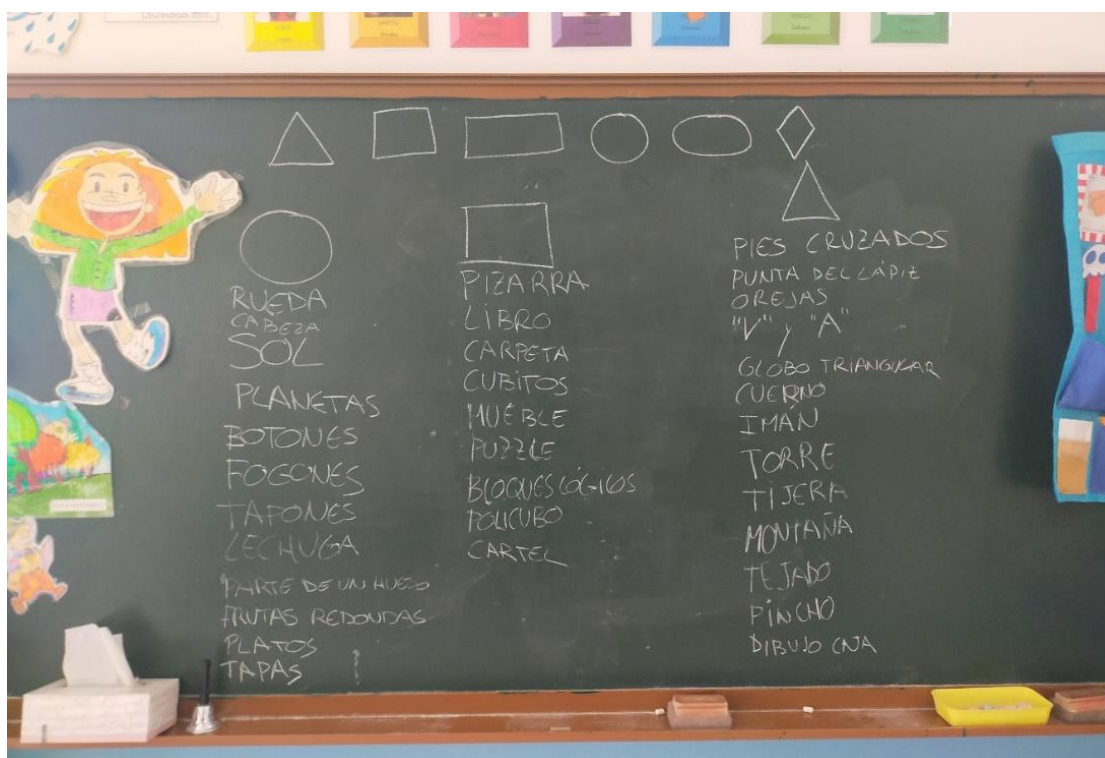 RUEDA
CABEZA
SOL
PLANETAS
BOTONES
FOGONES
TAPONES
LECHUGA
PARTE DE UN HUESO
FRUTAS REDONDAS
PLATOS
TAPAS
PIZARRA
LIBRO
CARPETA
CUBITOS
MUEBLE
PUZZLE
BLOQUES LÓGICOS
POLICUBO
CARTEL
PIES CRUZADOS
PUNTA DEL LÁPIZ
OREJAS
"V" y "A"
GLOBO TRIANGULAR
CUERNO
IMÁN
TORRE
TIJERA
MONTAÑA
TEJADO
PINCHO
DIBUJO